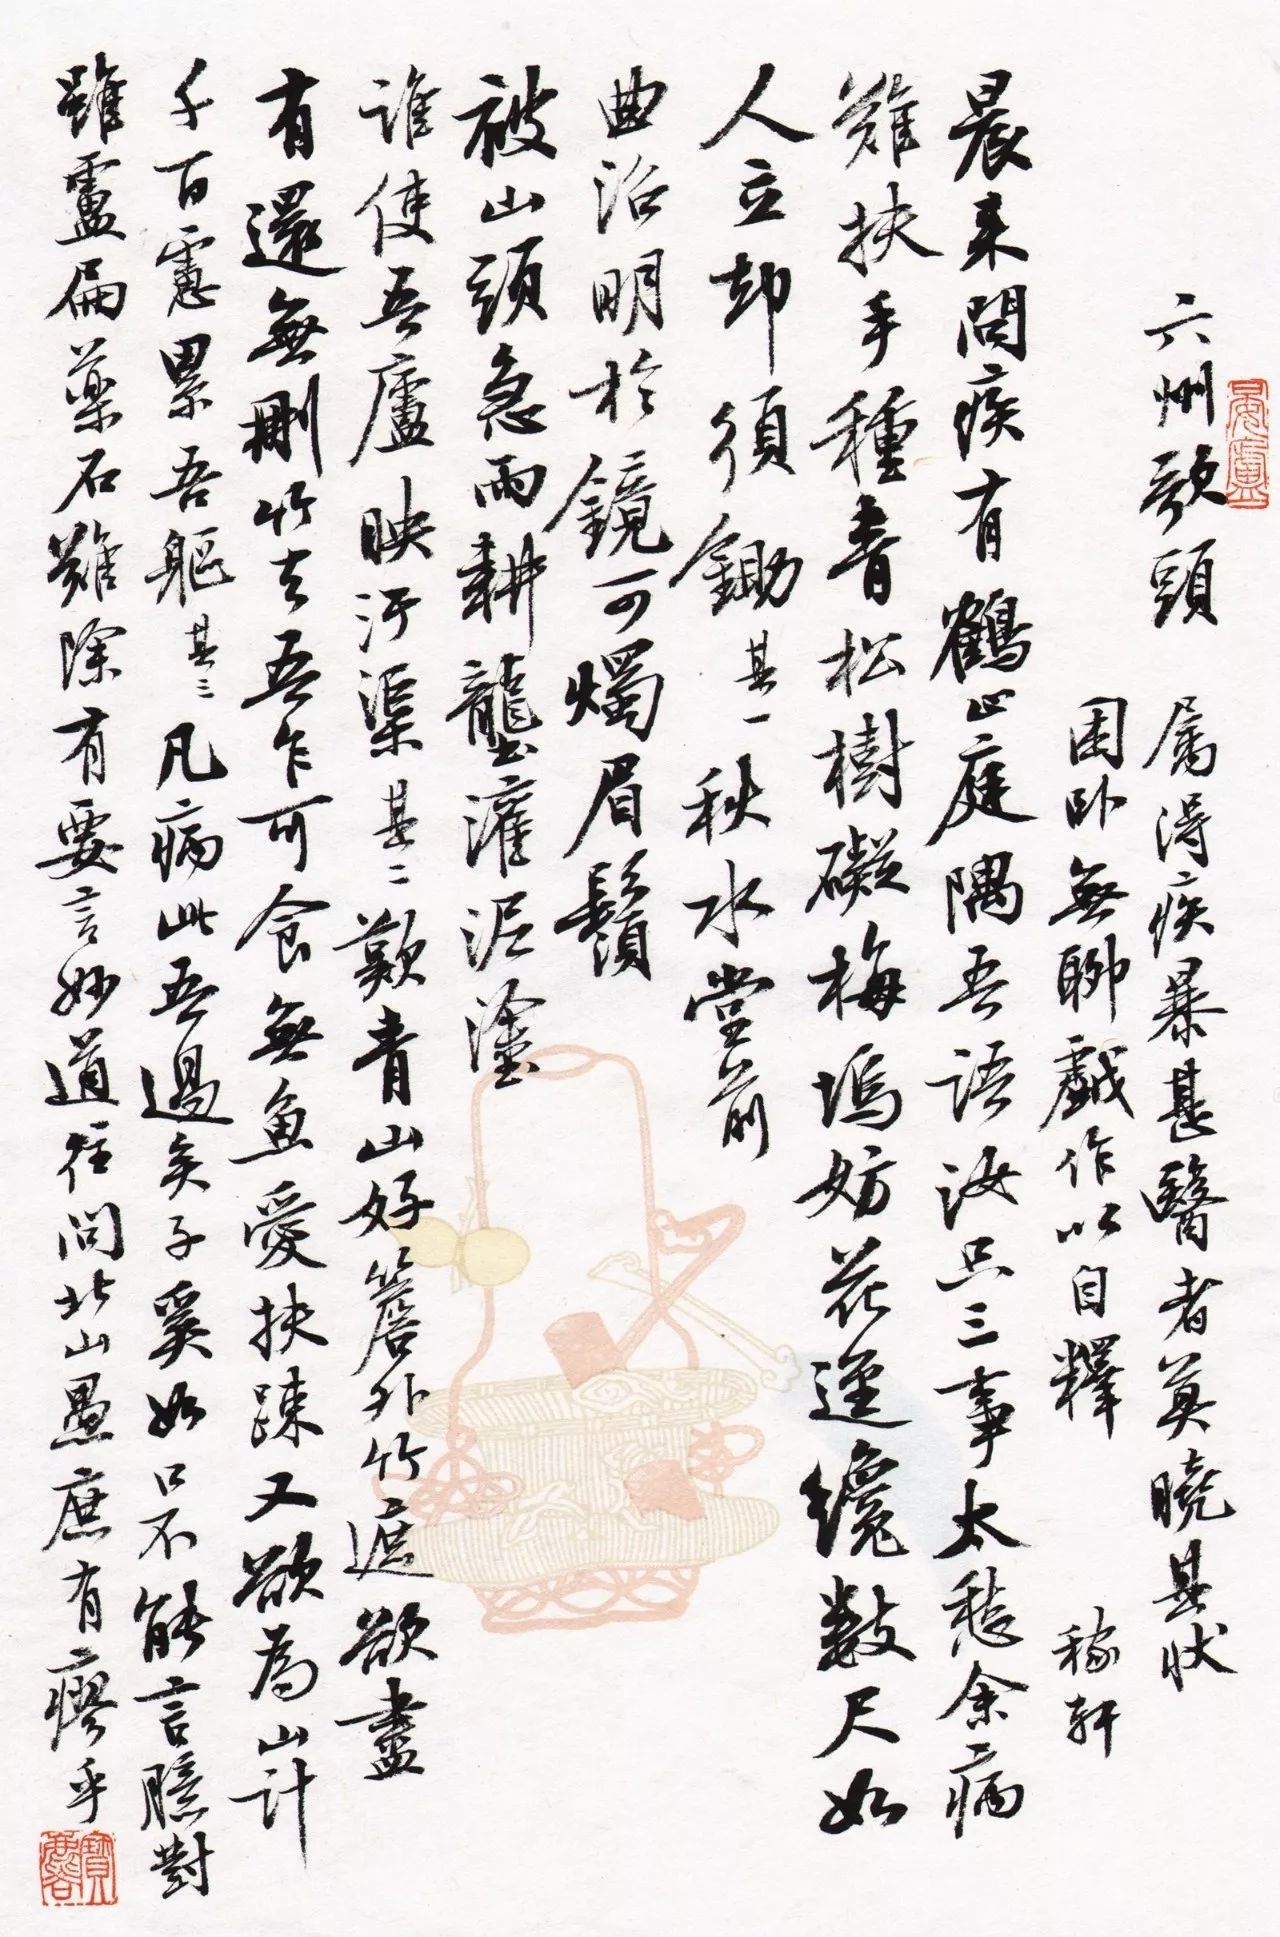 六州歌頭
屬得疾暴甚醫者莫曉其狀
困臥無聊戲作以自釋
稼軒
晨來問疾有鶴止庭隅吾語汝只三事太愁余病
難扶手種青松樹礙梅塢妨花逕纔數尺如
人立卻須鋤其一秋水堂前
曲沼明於鏡可燭眉鬚
被山頭急雨耕壟灌泥塗
誰使吾廬映汙渠其二歎青山好簷外竹遮欲盡
有還無刪竹去吾乍可食無魚愛扶疎又欲為山計
千百慮累吾軀其三凡病此吾過矣子奚如口不能言臆對
雖盧扁藥石難除有要言妙道往問北山愚庶有瘳乎